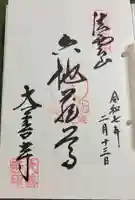 法雲山
令和七年
二月十三日
六地蔵尊
大善寺